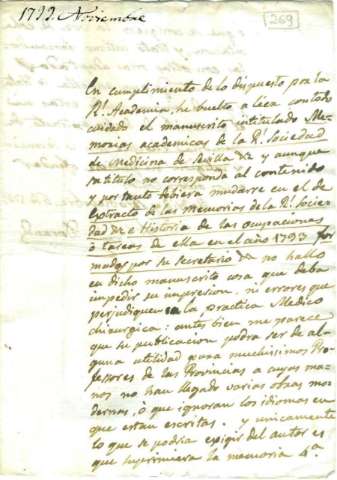 1799. Noviembre
269
En cumplimiento de lo dispuesto por la
Rl. Academia, he buelto a leer con todo
cuidado el manuscrito intitulado Me-
morias academicas de la Rl. Sociedad
de Medicina de Sevilla &a y aunque
su titulo no corresponda al contenido
y por tanto debiera mudarse en el de
Extracto de las Memorias de la Rl. Socie-
dad &a e Historia de las ocupaciones
ò tareas de ella en el año 1793 for-
madas por su secretario &a no hallo
en dicho manuscrito cosa que deba
impedir su impresion, ni errores que
perjudiquen a la practica Medico
chirurgica: antes bien me parece
que su publicacion podrà ser de al-
guna utilidad para muchisimos Pro-
fesores de las Provincias a cuyas ma-
nos no han llegado varias obras mo-
dernas, ò que ignoran los idiomas en
que estan escritas. y unicamente
lo que se podria exigir del autor es
que suprimiera la memoria 4.a